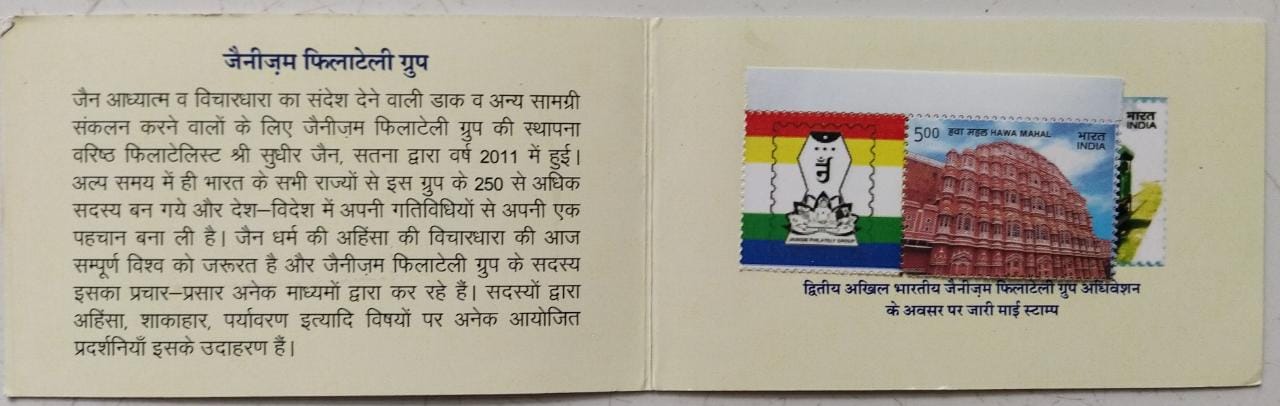 जैनीज़म फिलाटेली ग्रुप
जैन आध्यात्म व विचारधारा का संदेश देने वाली डाक व अन्य सामग्री
संकलन करने वालों के लिए जैनीज़म फिलाटेली ग्रुप की स्थापना
वरिष्ठ फिलाटेलिस्ट श्री सुधीर जैन, सतना द्वारा वर्ष 2011 में हुई।
अल्प समय में ही भारत के सभी राज्यों से इस ग्रुप के 250 से अधिक
सदस्य बन गये और देश–विदेश में अपनी गतिविधियों से अपनी एक
पहचान बना ली है। जैन धर्म की अहिंसा की विचारधारा की आज
सम्पूर्ण विश्व को जरूरत है और जैनीज़म फिलाटेली ग्रुप के सदस्य
इसका प्रचार–प्रसार अनेक माध्यमों द्वारा कर रहे हैं। सदस्यों द्वारा
अहिंसा, शाकाहार, पर्यावरण इत्यादि विषयों पर अनेक आयोजित
प्रदर्शनियाँ इसके उदाहरण हैं।
JAINISM PHILATELY GROUP
5.00 हवा महल HAWA MAHAL भारत
INDIA
भारत
INDIA
द्वितीय अखिल भारतीय जैनीज़म फिलाटेली ग्रुप अधिवेशन
के अवसर पर जारी माई स्टाम्प